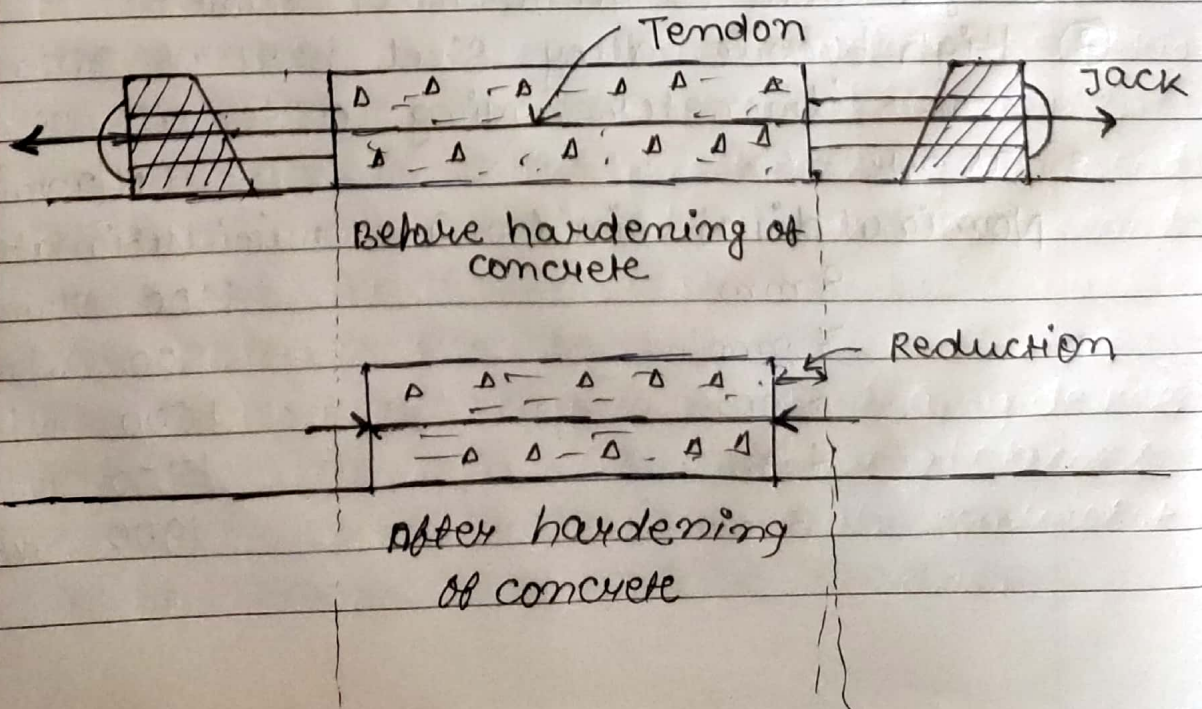 Tendon
Jack
Before hardening of
concrete
Reduction
After hardening
of concrete